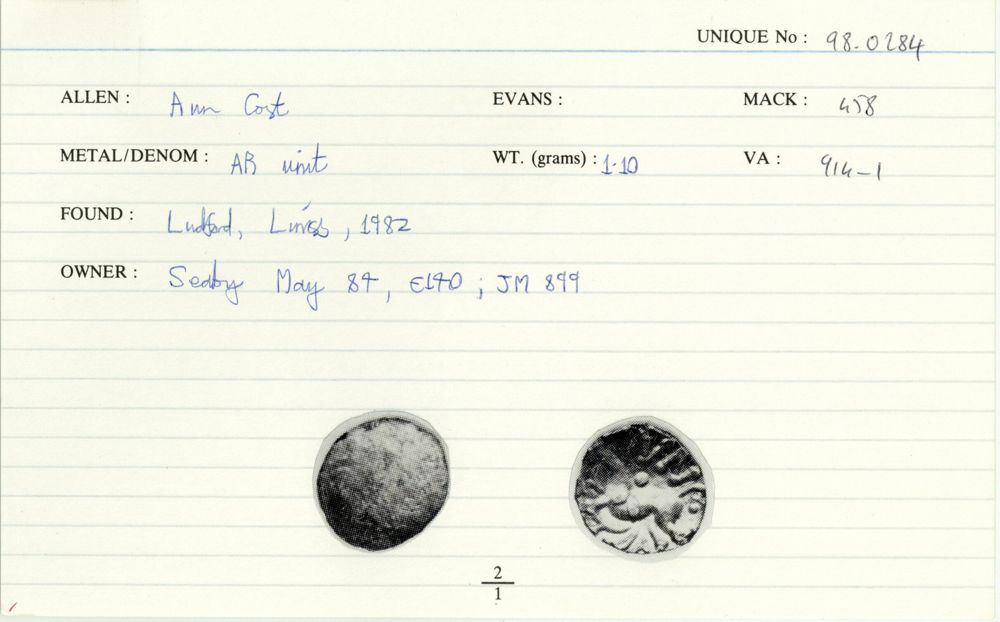 UNIQUE No : 98.0284
ALLEN : Aun Cost EVANS : MACK : 458
METAL/DENOM : AR unit WT. (grams) : 1.10 VA : 914-1
FOUND : Ludford, Lincs, 1982
OWNER : Seaby May 84, E140 ; JM 899
2
1